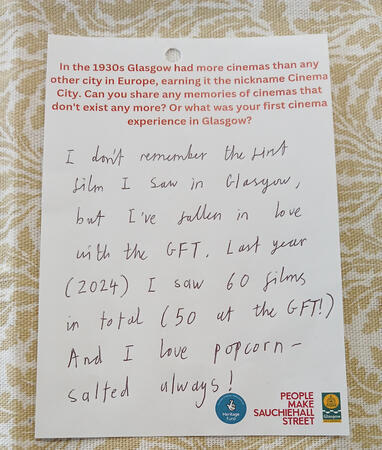 In the 1930s Glasgow had more cinemas than any
other city in Europe, earning it the nickname Cinema
City. Can you share any memories of cinemas that
don't exist any more? Or what was your first cinema
experience in Glasgow?
I don't remember the first
film I saw in Glasgow,
but I've fallen in love
with the GFT. Last year
(2024) I saw 60 films
in total (50 at the GFT!)
And I love popcorn –
salted always!
Heritage
Fund
PEOPLE
MAKE
SAUCHIEHALL
STREET
Glasgow